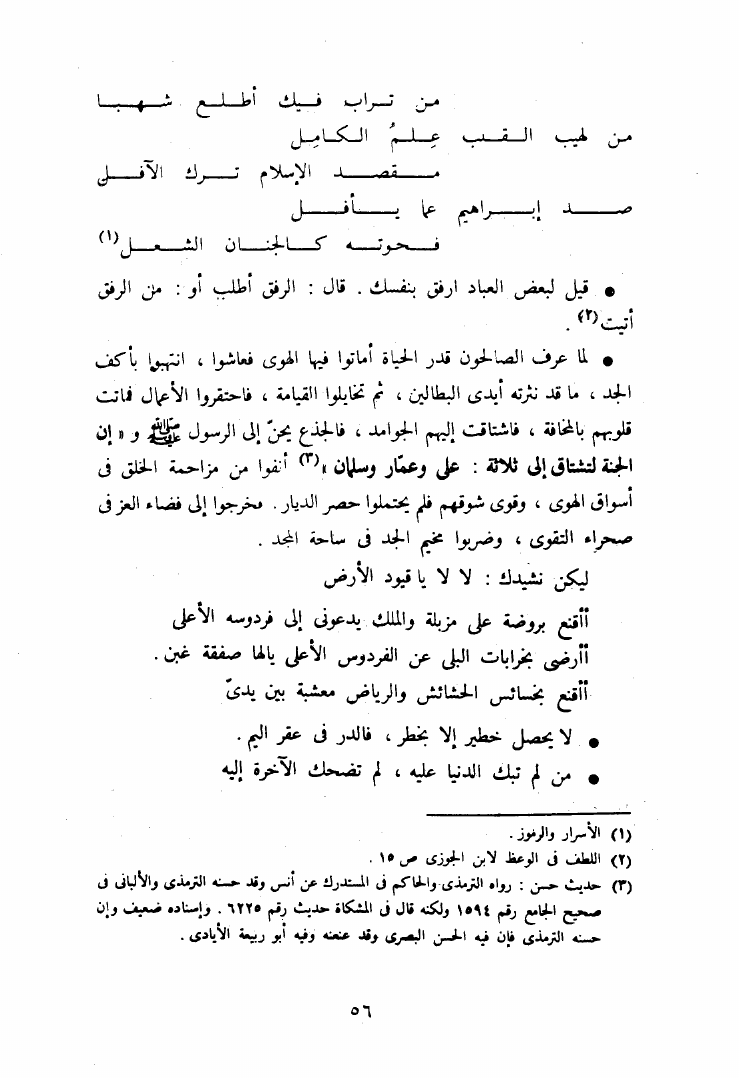 من تراب فيك أطلع شهبا
من لهيب القلب عِلمُ الكامِل
مقصد الإسلام ترك الآفل
صد إبراهيم عما يأفل
فحوته كالجنان الشعل(١)
● قيل لبعض العباد ارفق بنفسك . قال : الرفق أطلب أو : من الرفق
أتيت(٢) .
● لما عرف الصالحون قدر الحياة أماتوا فيها الهوى فعاشوا ، انتهبوا بأكف
الجد ، ما قد نثرته أيدى البطالين ، ثم تخايلوا القيامة ، فاحتقروا الأعمال فماتت
قلوبهم بالمخافة ، فاشتاقت إليهم الجوامد ، فالجذع يحنّ إلى الرسول ﷺ و « إن
الجنة لتشتاق إلى ثلاثة : على وعمّار وسلمان »(٣) أنفوا من مزاحمة الخلق فى
أسواق الهوى ، وقوى شوقهم فلم يحتملوا حصر الديار . فخرجوا إلى فضاء العز فى
صحراء التقوى ، وضربوا مخيم الجد فى ساحة المجد .
ليكن نشيدك : لا لا يا قيود الأرض
أأقنع بروضة على مزبلة والملك يدعونى إلى فردوسه الأعلى
أأرضى بخرابات البلى عن الفردوس الأعلى يالها صفقة غبن .
أأقنع بخسائس الحشائش والرياض معشبة بين يدىّ
● لا يحصل خطير إلا بخطر ، فالدر فى عقر اليم .
● من لم تبك الدنيا عليه ، لم تضحك الآخرة إليه
(١) الأسرار والرموز .
(٢) اللطف فى الوعظ لابن الجوزى ص ١٥ .
(٣) حديث حسن : رواه الترمذى والحاكم فى المستدرك عن أنس وقد حسنه الترمذى والألبانى فى
صحيح الجامع رقم ١٥٩٤ ولكنه قال فى المشكاة حديث رقم ٦٢٢٥ . وإسناده ضعيف وإن
حسنه الترمذى فإن فيه الحسن البصرى وقد عنعنه وفيه أبو ربيعة الأيادى .
٥٦